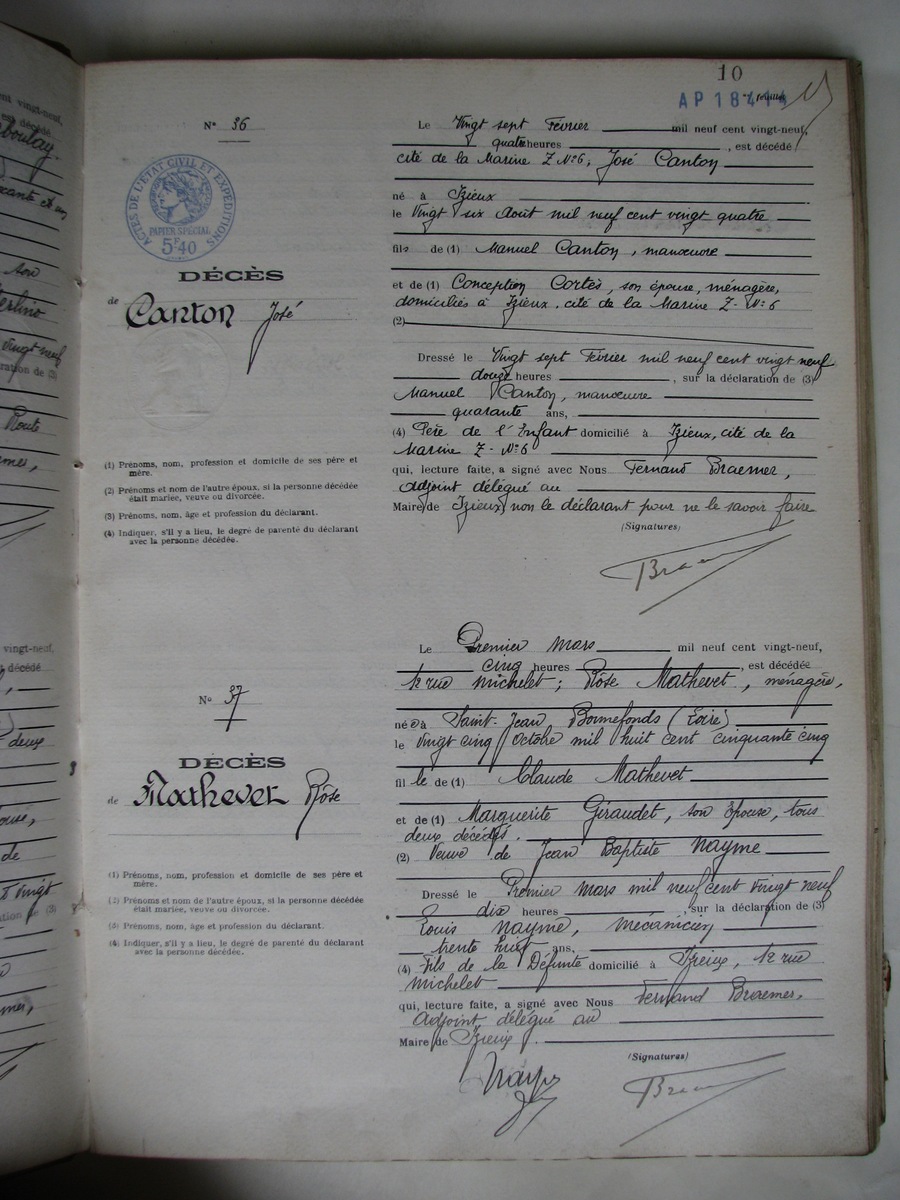 10
AP 184
feuillet
N° 36
ACTES DE L'ÉTAT CIVIL ET EXPÉDITIONS
PAPIER SPÉCIAL
5F40
DÉCÈS
de Canton José
(1) Prénoms, nom, profession et domicile de ses père et
mère.
(2) Prénoms et nom de l'autre époux, si la personne décédée
était mariée, veuve ou divorcée.
(3) Prénoms, nom, âge et profession du déclarant.
(4) Indiquer, s'il y a lieu, le degré de parenté du déclarant
avec la personne décédée.
Le Vingt sept Février mil neuf cent vingt-neuf,
quatre heures , est décédé
cité de la Marine Z N°6, José Canton
né à Izieux
le Vingt six Août mil neuf cent vingt quatre
fils de (1) Manuel Canton, manœuvre
et de (1) Conception Cortès, son épouse, ménagère,
domiciliés à Izieux, cité de la Marine Z- N°6
(2)
Dressé le Vingt sept Février mil neuf cent vingt neuf
douze heures , sur la déclaration de (3)
Manuel Canton, manœuvre
quarante ans,
(4) Père de l'Enfant domicilié à Izieux, cité de la
Marine Z- N°6
qui, lecture faite, a signé avec Nous Fernand Braemer,
Adjoint délégué au
Maire de Izieux, non le déclarant pour ne le savoir faire
(Signatures)
N° 37
DÉCÈS
de Mathevet Rôse
(1) Prénoms, nom, profession et domicile de ses père et
mère.
(2) Prénoms et nom de l'autre époux, si la personne décédée
était mariée, veuve ou divorcée.
(3) Prénoms, nom, âge et profession du déclarant.
(4) Indiquer, s'il y a lieu, le degré de parenté du déclarant
avec la personne décédée.
Le Premier Mars mil neuf cent vingt-neuf,
cinq heures , est décédée
12 rue Michelet; Rôse Mathevet, ménagère,
née à Saint-Jean Bonnefonds (Loire)
le vingt cinq Octobre mil huit cent cinquante cinq
fille de (1) Claude Mathevet
et de (1) Marguerite Giraudet, son épouse, tous
deux décédés.
(2) Veuve de Jean Baptiste Nayme
Dressé le Premier Mars mil neuf cent vingt neuf
dix heures , sur la déclaration de (3)
Louis Nayme, Mécanicien
trente huit ans,
(4) Fils de la Défunte domicilié à Izieux, 12 rue
Michelet
qui, lecture faite, a signé avec Nous Fernand Braemer,
Adjoint délégué au
Maire de Izieux.
(Signatures)